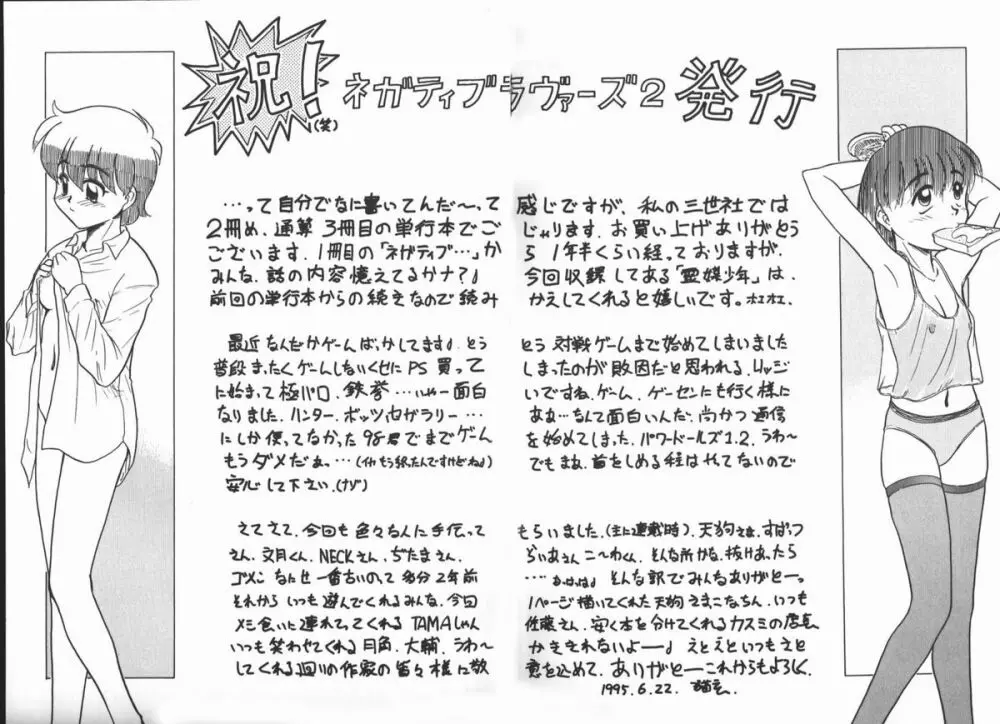 祝!
(笑)
ネガティブラヴァーズ2 発行
…って自分でなに書いてんだ〜って感じですが、私の三世社では
2冊め、通算3冊目の単行本でございます。お買い上げありがとう
ございます。1冊目の「ネガティブ…」から1年半くらい経っておりますが、
みんな、話の内容憶えてるかナ?♪今回収録してある「霊媒少年」は、
前回の単行本からの続きなので続みかえしてくれると嬉しいです。ホエホエ、
最近なんだかゲームばっかしてます♪とうとう対戦ゲームまで始めてしまいました
普段まったくゲームしないくせにPS買ってしまったのが敗因だと思われる、リッジ
に始まって極パロ、鉄拳……いやー面白いですね、ゲーム、ゲーセンにも行く様に
なりました、ハンター、ボッツ
なんて面白いんだ、尚かつ通信
にしか使ってなかった98君でまでゲームを始めてしまった、パワードールズ1.2、うわ〜
もうダメだぁ…
安心して下さい、(ナゾ)
さてさて、今回も色々なんに手伝ってもらいました、(主に連載時)、天狗さま、すぱっつ
さん、文月くん、NECKさん、ぢたまさん、
ゴメン
……そんな訳でみんなありがとー。
それから いつも遊んでくれるみんな、今回1ページ描いてくれた天狗
メシ食いに連れてってくれるTAMAしゃん
佐藤さん、安く本を分けてくれるカスミの店長
いつも笑わせてくれる月角、大輔、うわ〜かききれないよー♪
してくれる回りの作家の皆々様に敬意を込めて、ありがとーこれからもよろしく、
1995.6.22.